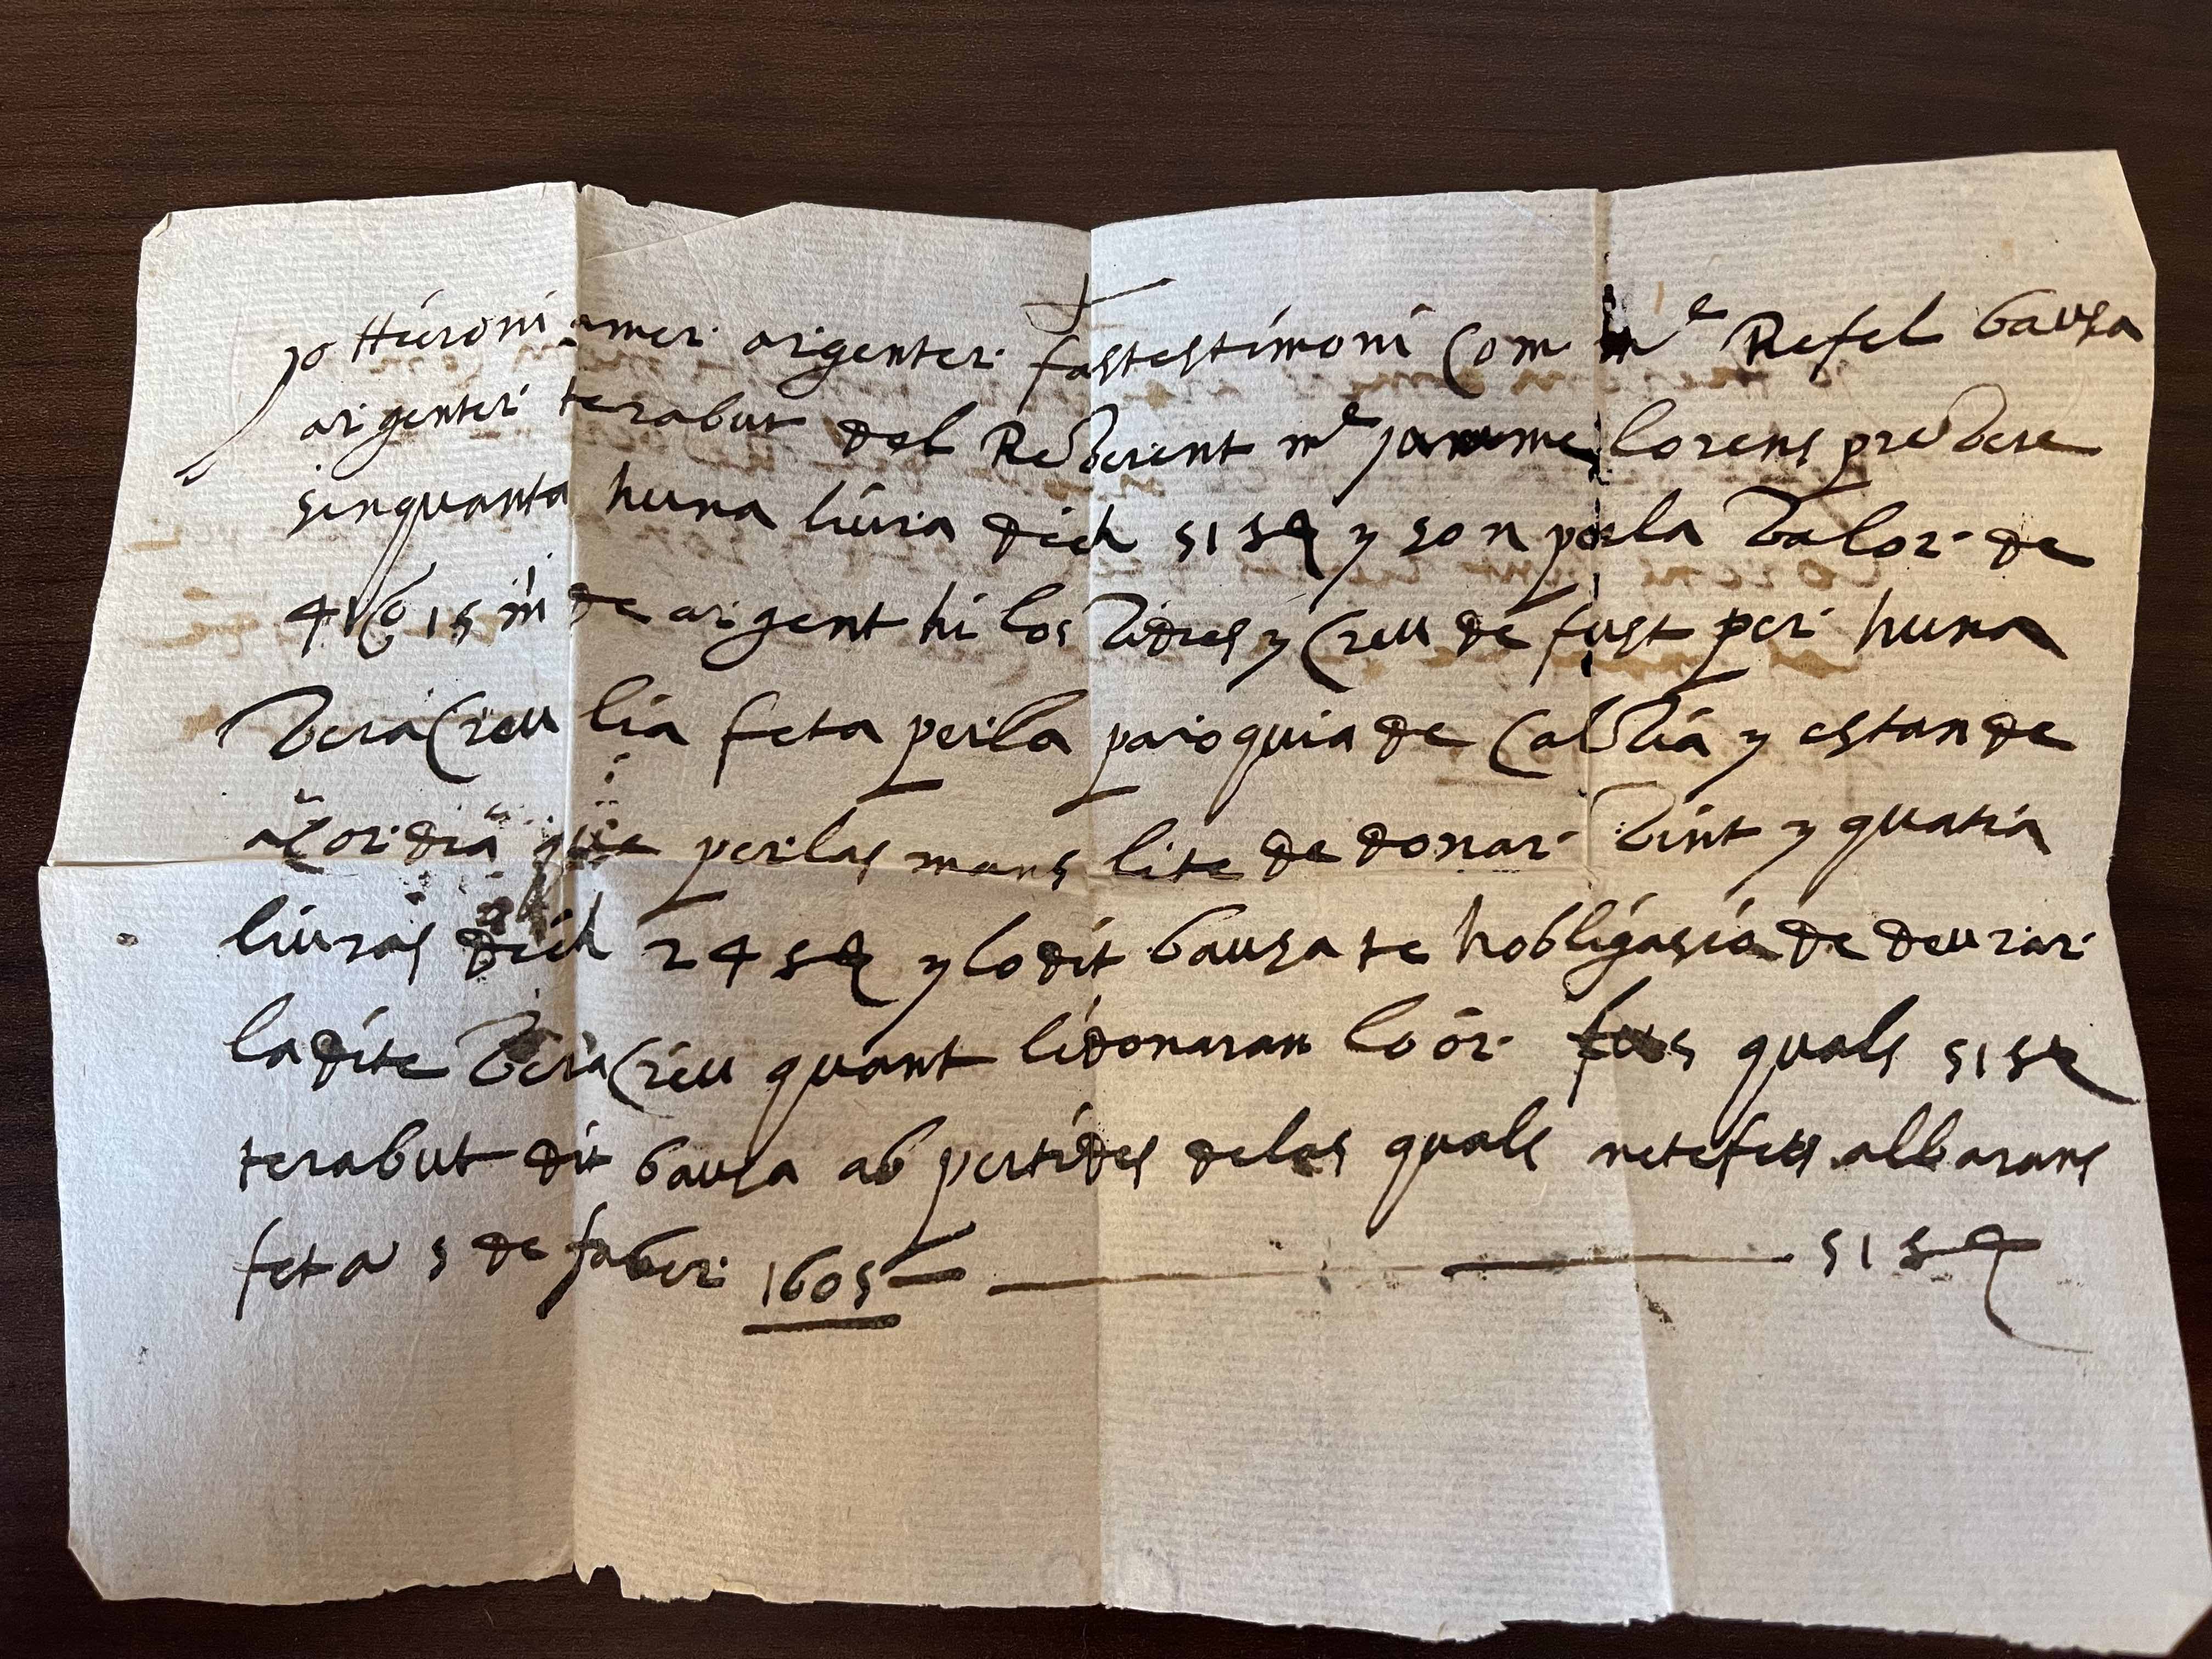 jo Hieroni amer argenter fas testimoni Com mᵉ Refel bausa
argenter te rabut del Reverent mᵉ jaume lorens prevere
sinquanta huna liura dich 51 s y son per la valor de
41 15 de argent hi los vidres y Creu de fust per huna
vera Creu lia feta per la paroquia de Calvia y estan de
acordia que per las mans li te de donar vint y quatra
liuras dich 24 s y lo dit bausa te hobligasio de deurar
la dite vera Creu quant li donaran lo or las quals 51 s
te rabut dit bausa ab pertides de las quals ne te fets albarans
fet a 5 de faber 1605 51 s